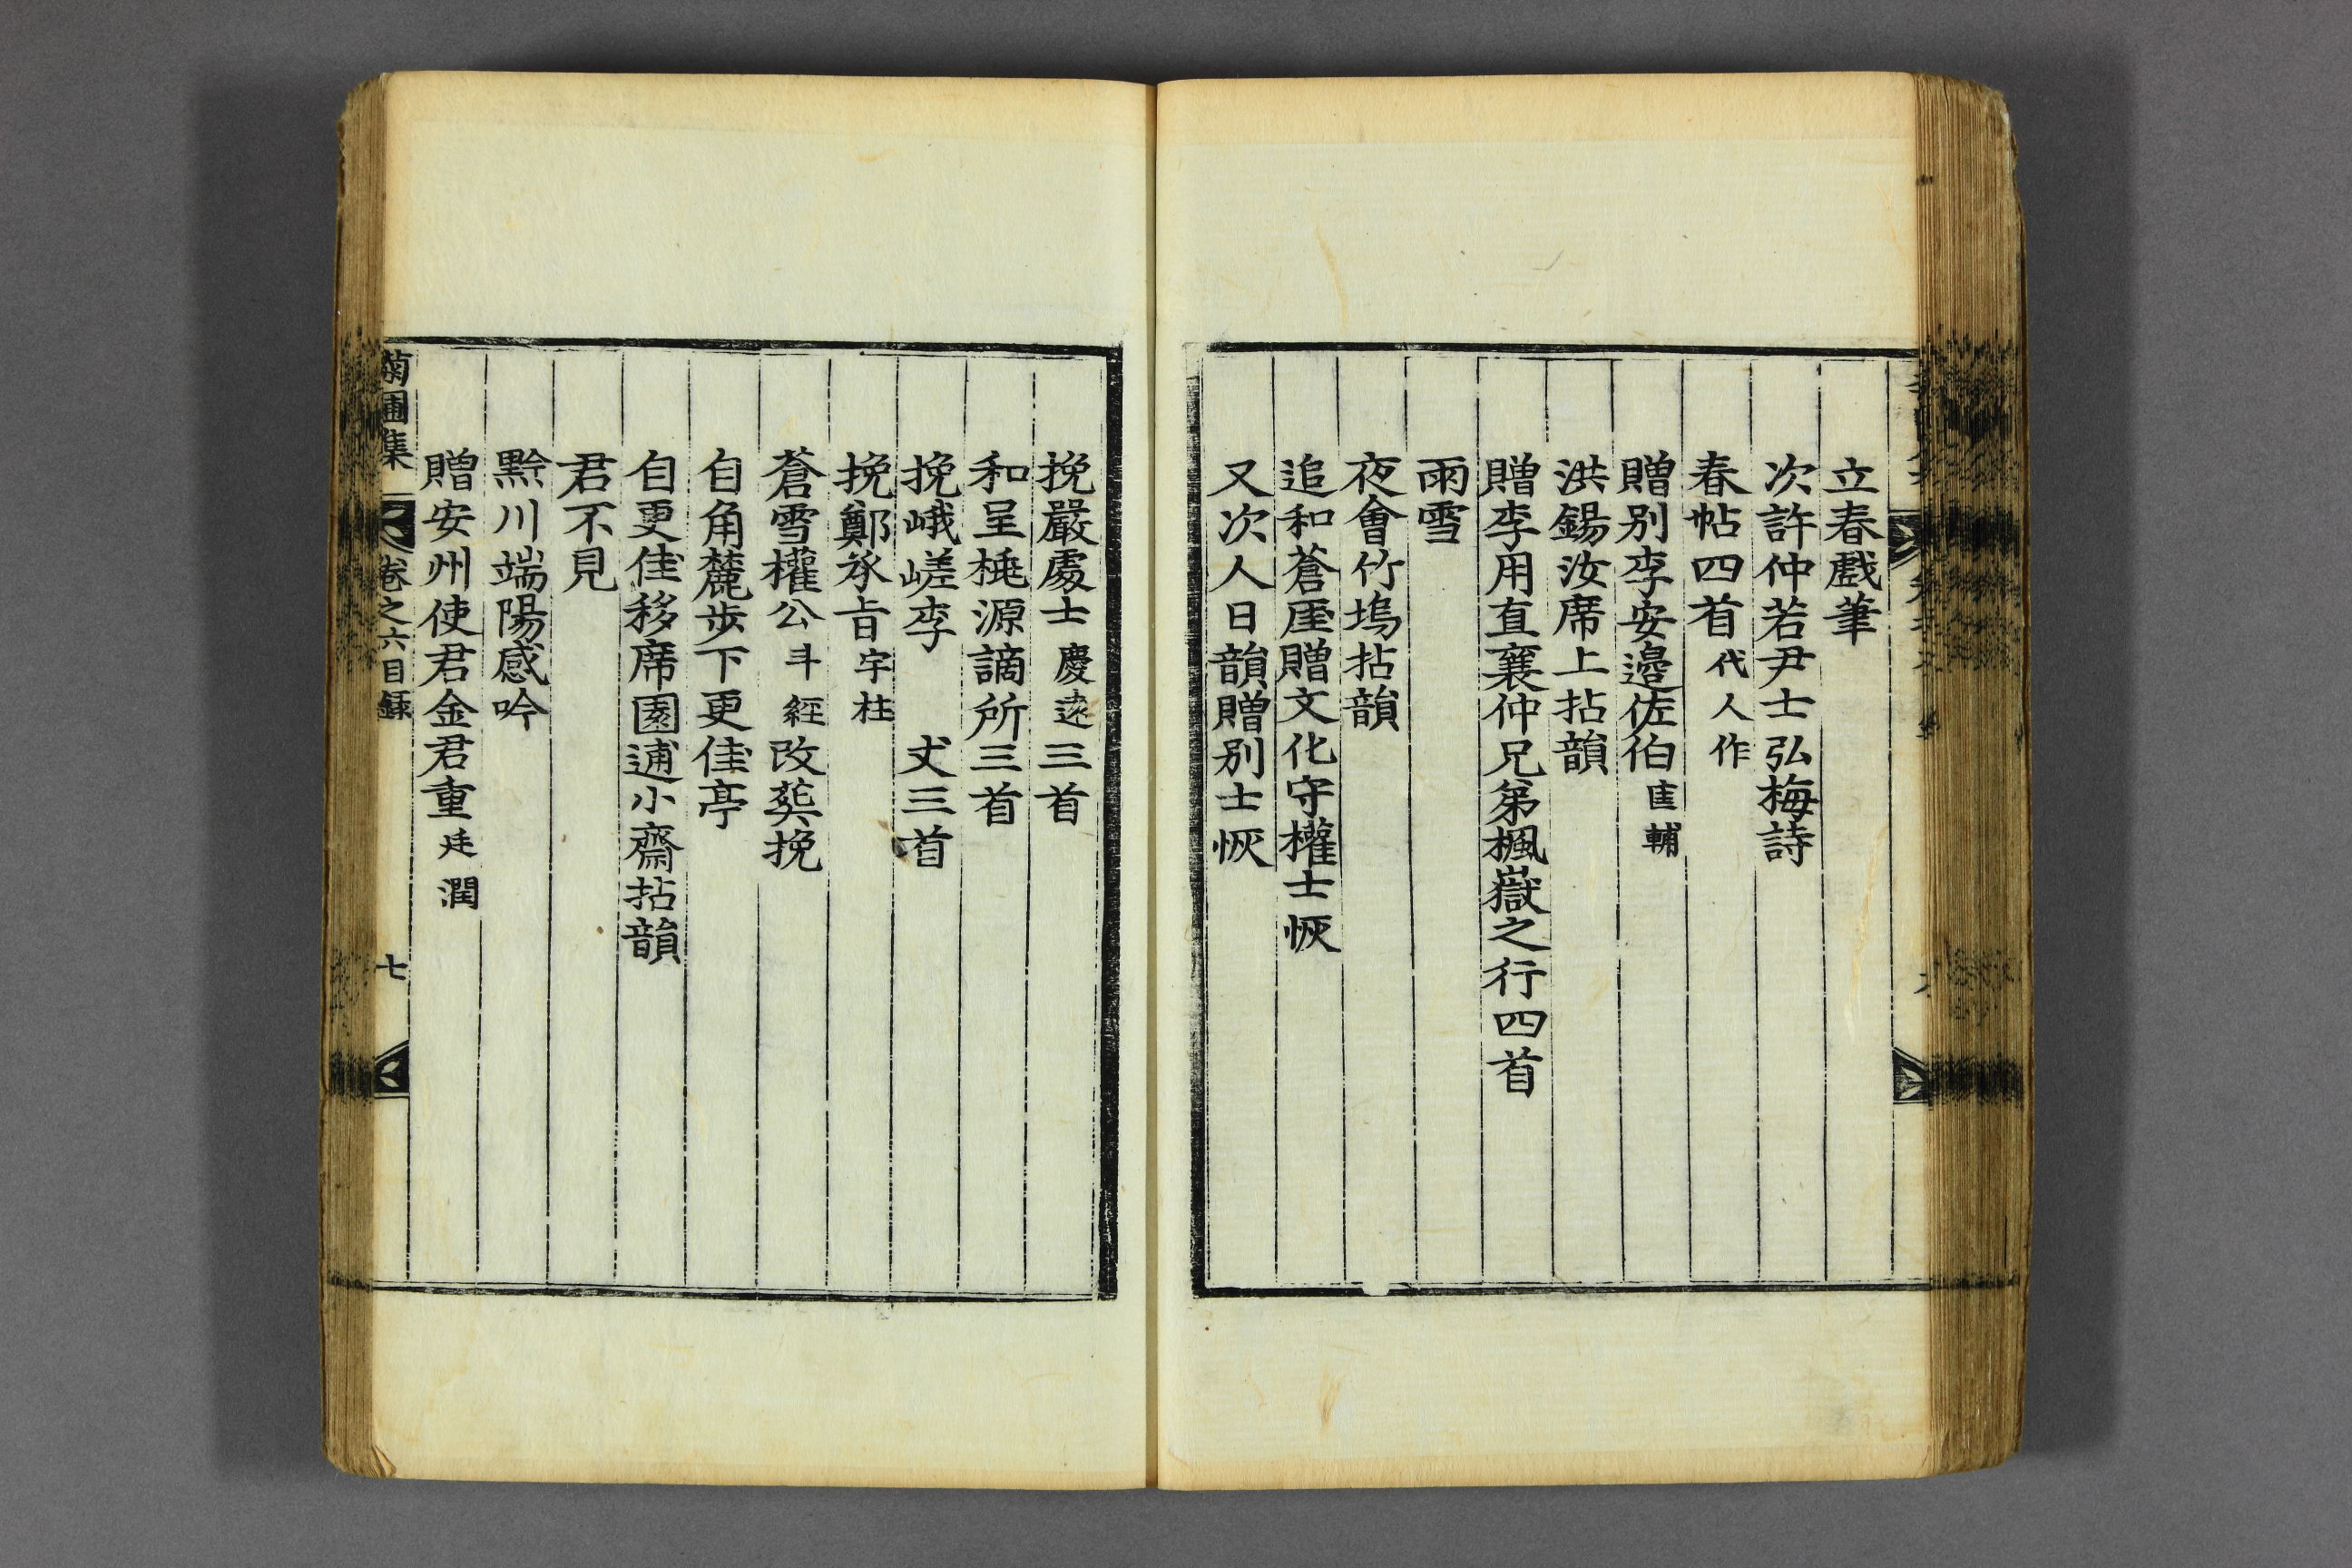 立春戱筆
次許仲若尹士弘梅詩
春帖四首代人作
贈別李安邊佐伯匡輔
洪錫汝席上拈韻
贈李用直襄仲兄弟楓嶽之行四首
雨雪
夜會竹塢拈韻
追和蒼厓贈文化守權士恢
又次人日韻贈別士恢
挽嚴處士慶遂三首
和呈桃源謫所三首
挽峨嵯李 丈三首
挽鄭承旨宇柱
蒼雪權公斗經改葬挽
自角麓步下更佳亭
自更佳移席園逋小齋拈韻
君不見
黔川端陽感吟
贈安州使君金君重廷潤
菊圃集 卷之六目錄 七